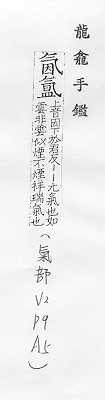 龍龕手鑑
氤氳
上音因下於君反丨丨元氣也如
雲非雲似煙不煙祥瑞氣也
(氣部 V2 P9 A5)